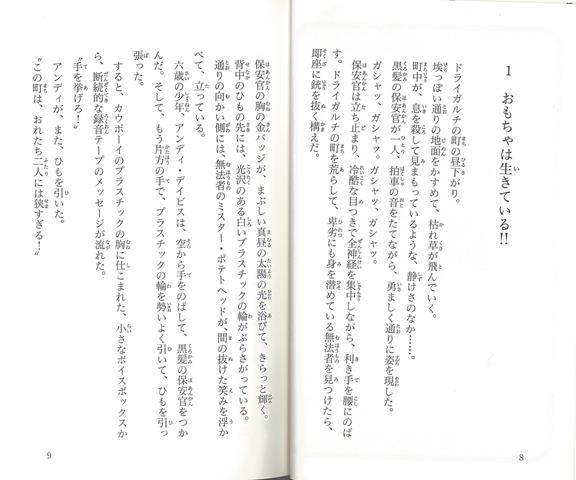 1 おもちゃは生きている!!
ドライガルチの町の昼下がり。
埃っぽい通りの地面をかすめて、枯れ草が飛んでいく。
町中が、息を殺して見まもっているような、静けさのなか……。
黒髪の保安官が一人、拍車の音をたてながら、勇ましく通りに姿を現した。
ガシャッ、ガシャッ。ガシャッ、ガシャッ。
保安官は立ち止まり、冷酷な目つきで全神経を集中しながら、利き手を腰にのば
す。ドライガルチの町を荒らして、卑劣にも身を潜めている無法者を見つけたら、
即座に銃を抜く構えだ。
8
保安官の胸の金バッジが、まぶしい真昼の太陽の光を浴びて、きらっと輝く。
背中のひもの先には、光沢のある白いプラスチックの輪がぶらさがっている。
通りの向かい側には、無法者のミスター・ポテトヘッドが、間の抜けた笑みを浮か
べて、立っている。
六歳の少年、アンディ・デイビスは、空から手をのばして、黒髪の保安官をつか
んだ。そして、もう片方の手で、プラスチックの輪を勢いよく引いて、ひもを引っ
張った。
すると、カウボーイのプラスチックの胸に仕こまれた、小さなボイスボックスか
ら、断続的な録音テープのメッセージが流れた。
〝手を挙げろ!〟
アンディが、また、ひもを引いた。
〝この町は、おれたち二人には狭すぎる!〟
9